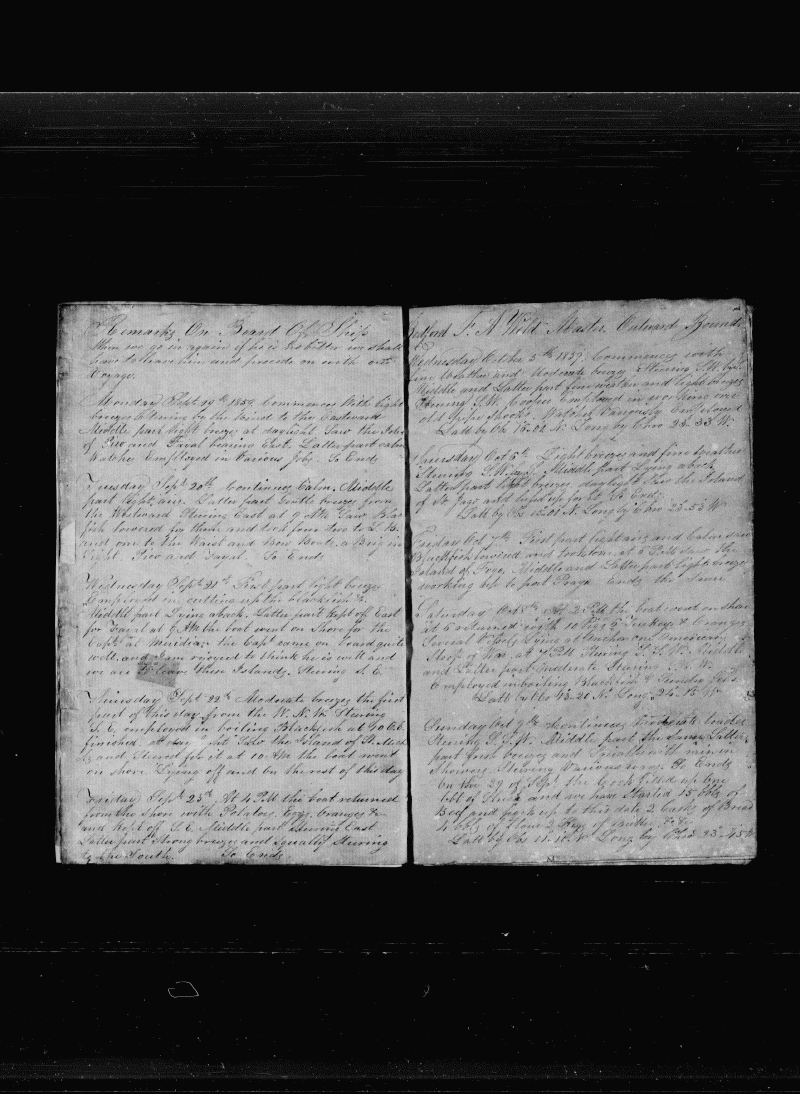 Remarks On Board Of Ship
When we go in again if he is no better we shall
have to leave him and procede on with out
Voyage.
Monday Sept 19th 1859 Commences With light
breezes Steering by the Wind to the Eastward
Middle part light breeze at daylight Saw the Islands
of Pico and Fayal bearing East. Latter part calm
Watches Employed in Various Jobs. So Ends
Tuesday Sept 20th Continues Calm. Middle
part light airs. Latter part Gentle breeze from
the Westward Steering East at 9 Saw Black
fish lowered for them and took four two to L. B.
and one to the Waist and Bow Boats. a Brig in
Sight. Pico and Fayal. So Ends
Wednesday Sept 21st First part light breeze
Employed in cutting up the blackfish
Middle part Laying aback. Latter part Kept off East
for Fayal at 9 AM the boat went on Shore for the
Capt. at Meridian the Capt came on board quite
well. and I am rejoiced to think he is well and
we are to leave these Islands. Steering S. E.
Thursday Sept 22nd Moderate breezes the first
part of this day from the W. N. W. Steering
S. E. employed in boiling Blackfish at
finished. at Saw the Island of St
and Steered for it at 10 AM the boat went
on shore Laying off and on the rest of this day
Friday Sept 23rd At 4 PM the boat returned
from the Shore with Potatoes Eggs oranges &c
and Kept off S. E. Middle part Steering East
Latter part Strong breezes and Squally Steering
to the South. So Ends
Bedford F. A. Weld Master Outward Bound
Wednesday October 5th 1859. Commences with
fine Weather and Moderate breeze Steering
Middle and Latter part fine weather and light breezes
Steering S.W. Cooper Employed in working over
old pipe shooks. Watches Variously Employed
Latt by Ob 16.02 N. Long by Chro 23.33 W.
Thursday Oct 5th Light breezes and fine weather
Steering S.W. Middle part Laying aback
Latter part light breezes daylight Saw the Island
of and kept up for it So Ends
Latt by Obs N. Long by Chro 23.53 W
Friday Oct 7th First part light airs and Calm saw
Blackfish lowered and took one at 5 PM saw the
Island of Fogo, Middle and Latter part light breezes
working up to port Praya ends the Same
Saturday Oct 8th At 2 PM the boat went on shore
at 5 returned with 10 Pigs 2 Turkeys & Oranges
Several Vessels Lying at anchor one American
Sloop of War at 7 PM Steering S.S.W. Middle
and Latter part Moderate Steering
Employed in boiling Blackfish & Sundry jobs
Latt by Obs 13.20 N. Long 24.15 W
Sunday Oct 9th Continues Moderate trades
Steering S.S.W. Middle part the Same Latter
part fresh breezes and Squally with rain in
Showers Steering Various ways. So Ends
On the 29 of Sept the Cook filled up one
bbl of Slush and we have Started 15 bbls of
Bed and picked up to this date 2 Casks of Bread
4 bbls of flour
Latt by Obs 11.11 N Long by Chro 23.45 W